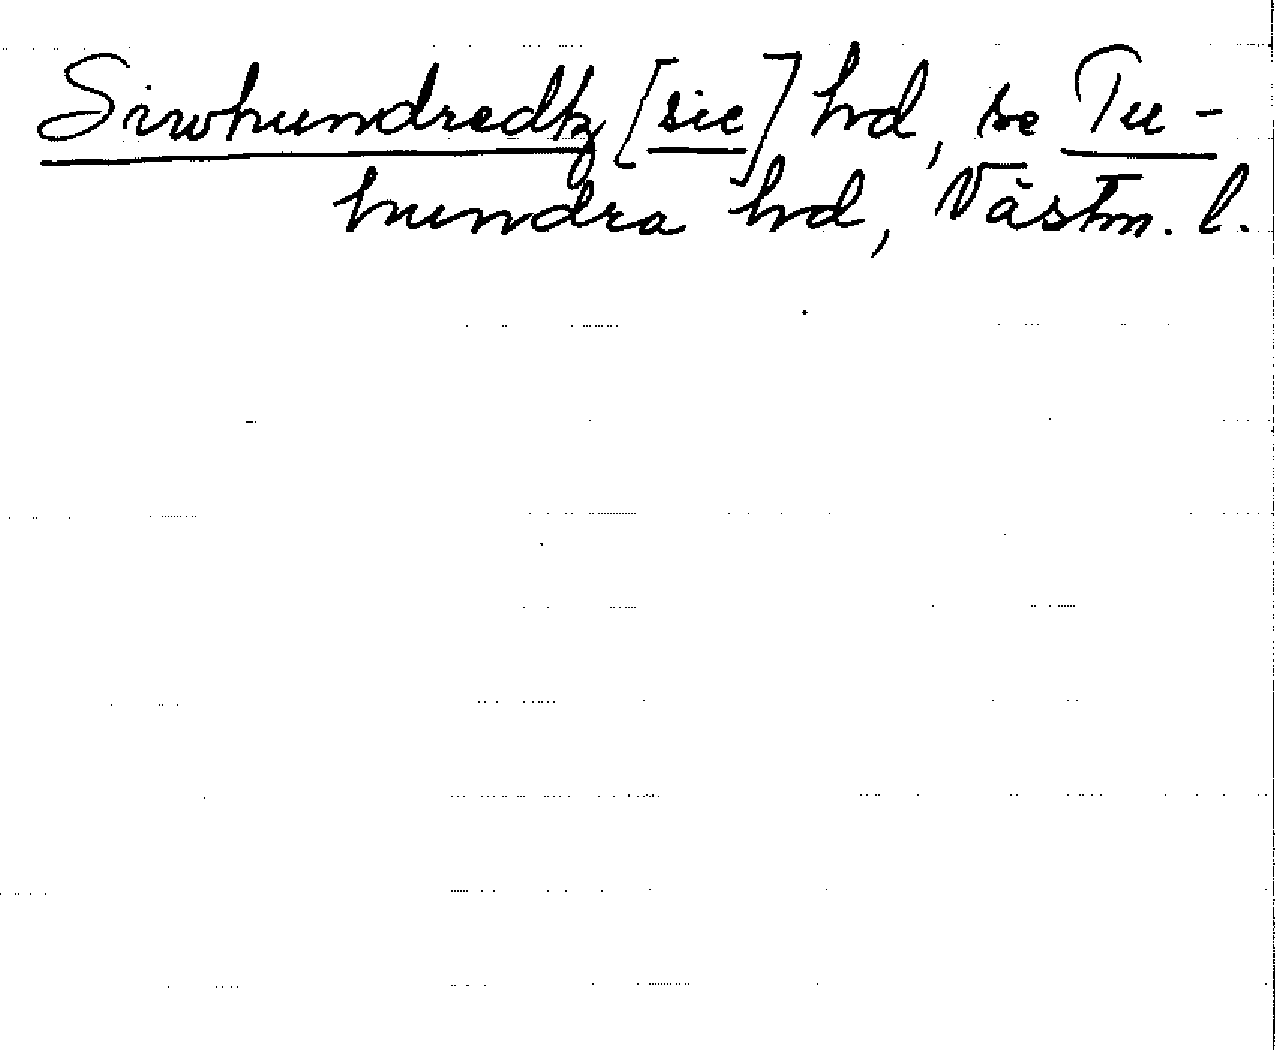 Sirwhundredhz [sic] hd, se Tu-
hundra hd, Västm. l.